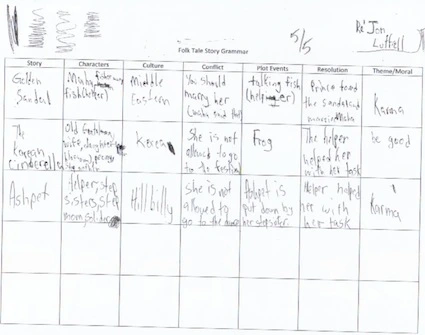 5/5
Re'Jon
Luttell
Folk Tale Story Grammar
Story Characters Culture Conflict Plot Events Resolution Theme/Moral
Golden
Sandal
Maha
fish(helper)
Middle
Eastern
You should
marry her
talking fish
(helper)
Prince found
the sandal and
married Maha
Karma
The
Korean
Cinderella
Korean
She is not
allowed to go
to the festival
Frog
The helper
helped her
with her task
be good
Ashpet
helper, step
sisters, step
mom, soldier
Hillbilly
she is not
allowed to
go to the
Ashpet is
put down by
her stepsister
Helper helped
her with
her task
Karma